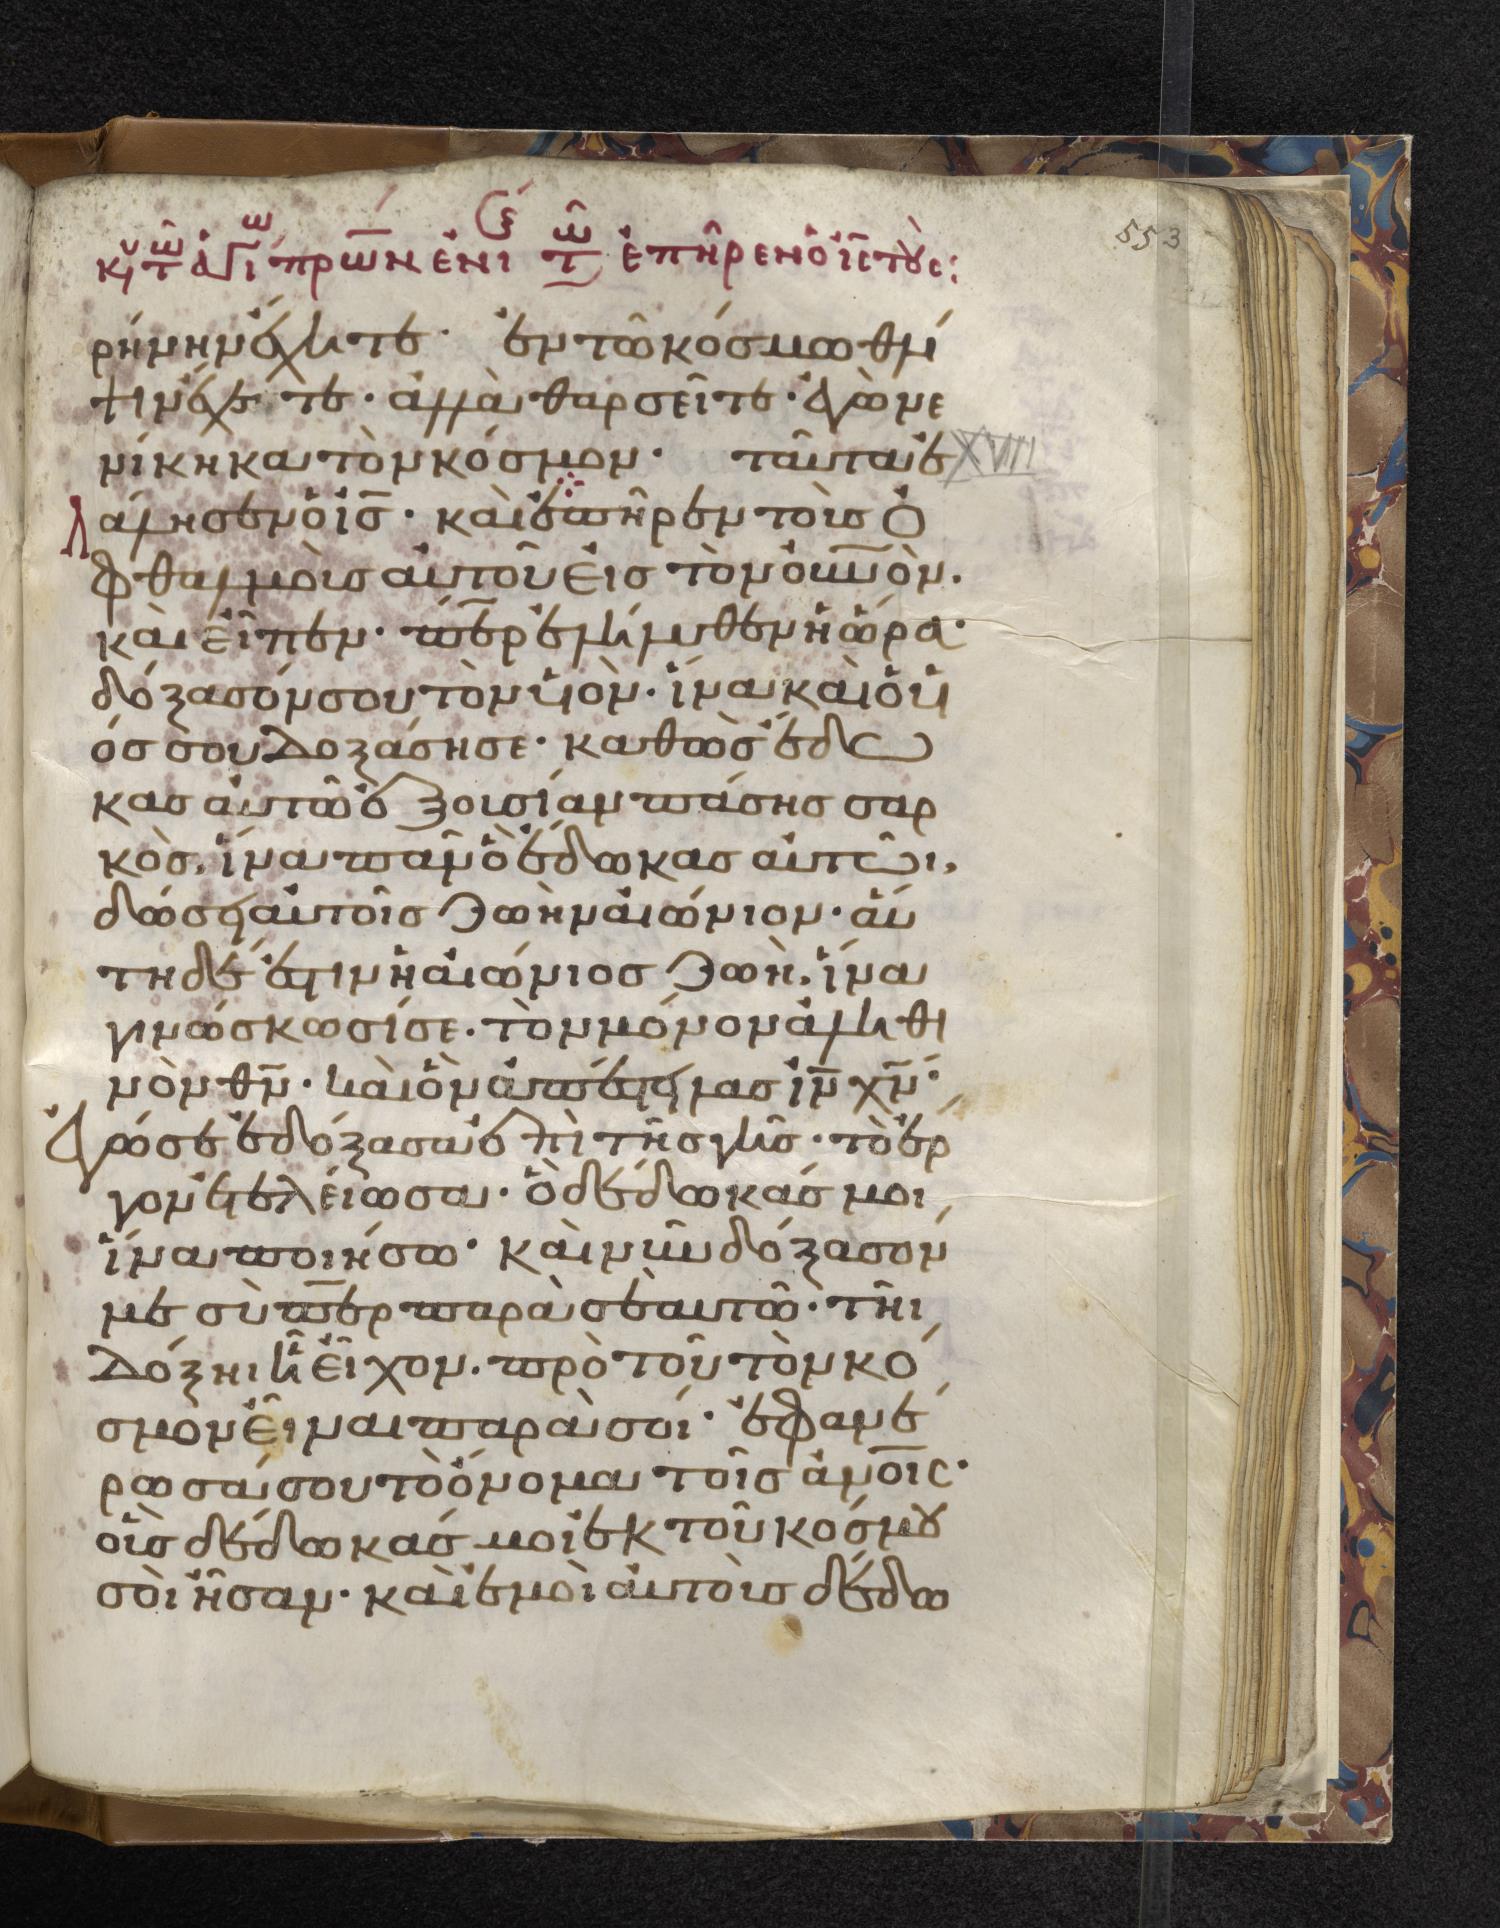 553
κυ τῶ ἁγί πρων ἐνι τῶ ἐπῆρεν ὁ ις τοὺς:
ρήνην ἔχητε· ἐν τῶ κόσμω θλί
ψιν ἕξετε· ἀλλὰ θαρσεῖτε· ἐγὼ νε
νίκηκα τὸν κόσμον· ταῦτα ἐ
XVII
λάλησεν ὁ ις· καὶ ἐπῆρεν τοὺς ὀ
φθαλμοὺς αὐτοῦ εἰς τὸν οὐνὸν.
καὶ εἶπεν· περ ἐλήλυθεν ἡ ὥρα·
δόξασόν σου τὸν υἱὸν· ἵνα καὶ ὁ υἱ
ός σου δοξάση σε· καθὼς ἔδω
κας αὐτῶ ἐξουσίαν πάσης σαρ
κὸς, ἵνα πᾶν ὃ ἔδωκας αὐτῶι,
δώσῃ αὐτοῖς ζωὴν αἰώνιον· αὕ
τη δέ ἐστιν ἡ αἰώνιος ζωὴ, ἵνα
γινώσκωσί σε· τὸν μόνον ἀληθι
νὸν θν· καὶ ὃν ἀπέστειλας ιν χν·
ἐγώ σε ἐδόξασα ἐπὶ τῆς γῆς· τὸ ἔρ
γον ἐτελείωσα· ὃ δέδωκάς μοι
ἵνα ποιήσω· καὶ νῦν δόξασόν
με σὺ περ παρὰ σεαυτῶ· τῆι
δόξηι ἧ εἶχον· πρὸ τοῦ τὸν κό
σμον εἶναι παρὰ σοί· ἐφανέ
ρωσά σου τὸ ὄνομα τοῖς ἀνοις·
οὓς δέδωκάς μοι ἐκ τοῦ κόσμου
σοὶ ἦσαν· καὶ ἐμοὶ αὐτοὺς δέδω